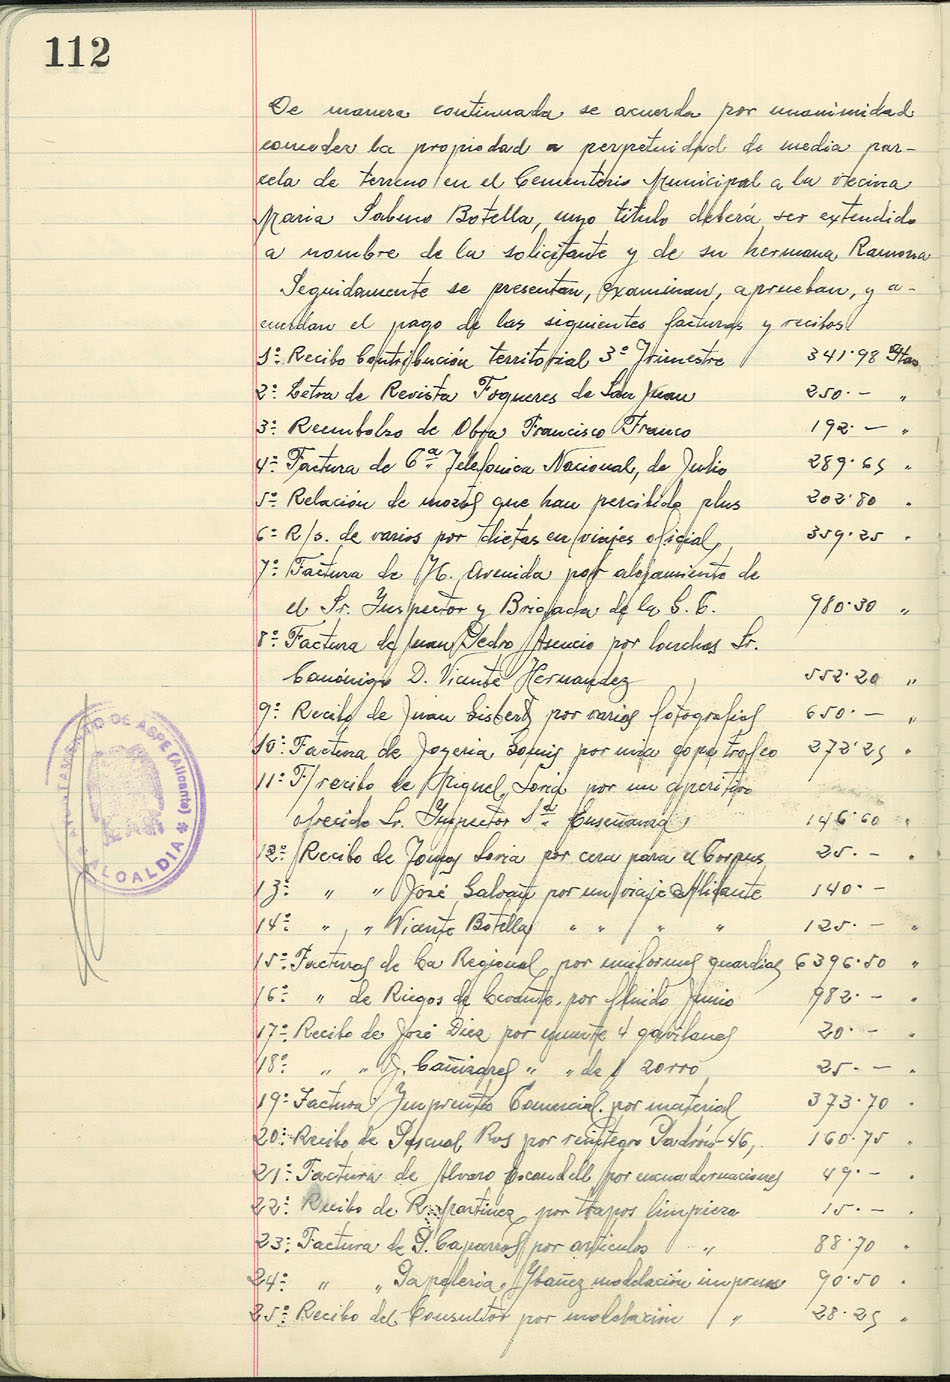 112
De manera continuada se acuerda por unanimidad
conceder la propiedad a perpetuidad de media par-
cela de terreno en el Cementerio Municipal a la vecina
Maria Sabuco Botella, cuyo título deberá ser extendido
a nombre de la solicitante y de su hermana Ramona
Seguidamente se presentan, examinan, aprueban, y a-
cuerdan el pago de las siguientes facturas y recibos.
1º- Recibo Contribución territorial 3º Trimestre 341'98 Ptas
2º- Letra de Revista Fogueres de San Juan 250'- "
3º- Reembolso de Obra Francisco Franco 192'- "
4º- Factura de Cª Telefonica Nacional, de Julio 289'65 "
5º- Relación de mozos que han percibido plus 202'80 "
6º- R/s. de varios por dietas en viajes oficial, 359'25 "
7º- Factura de H. Avenida por alojamiento de
el Sr. Inspector y Brigada de la G. C. 980'30 "
8º- Factura de Juan Pedro Asencio por lunchos Sr.
Canónigo D. Vicente Hernandez 552'20 "
9º- Recibo de Juan Gisbert, por varias fotografias 650'- "
10º- Factura de Joyeria Gomis por una copa trofeo 272'25 "
11º- F/ recibo de Miguel Soria por un aperitivo
ofrecido Sr. Inspector 1ª Enseñanza 146'60 "
12º- Recibo de Tomas Soria por cera para el Corpus 25'- "
13º- " " José Galvañ por un viaje a Alicante 140'-
14º- " " Vicente Botella " " " " 125'- "
15º- Facturas de La Regional, por uniformes guardias 6396'50 "
16º- " de Riegos de Levante, por fluido Junio 982'- "
17º- Recibo de José Diez por muerte 4 gavilanes 20'- "
18º- " " J. Cañizares " " de 1 zorro 25'- "
19º- Factura Imprenta Comercial, por material 373'70 "
20º- Recibo de Pascual Ros por reintegro Padrón-46, 160'75 "
21º- Factura de Alvaro Escandell por encuadernaciones 49'- "
22º- Recibo de R. Martinez por trapos limpieza 15'- "
23º- Factura de P. Caparros por articulos " 88'70 "
24º- " " Papeleria Ybañez modelación impresa 90'50 "
25º- Recibo del Consultor por modelación " 28'25 "
AYUNTAMIENTO DE ASPE (Alicante)
ALCALDIA